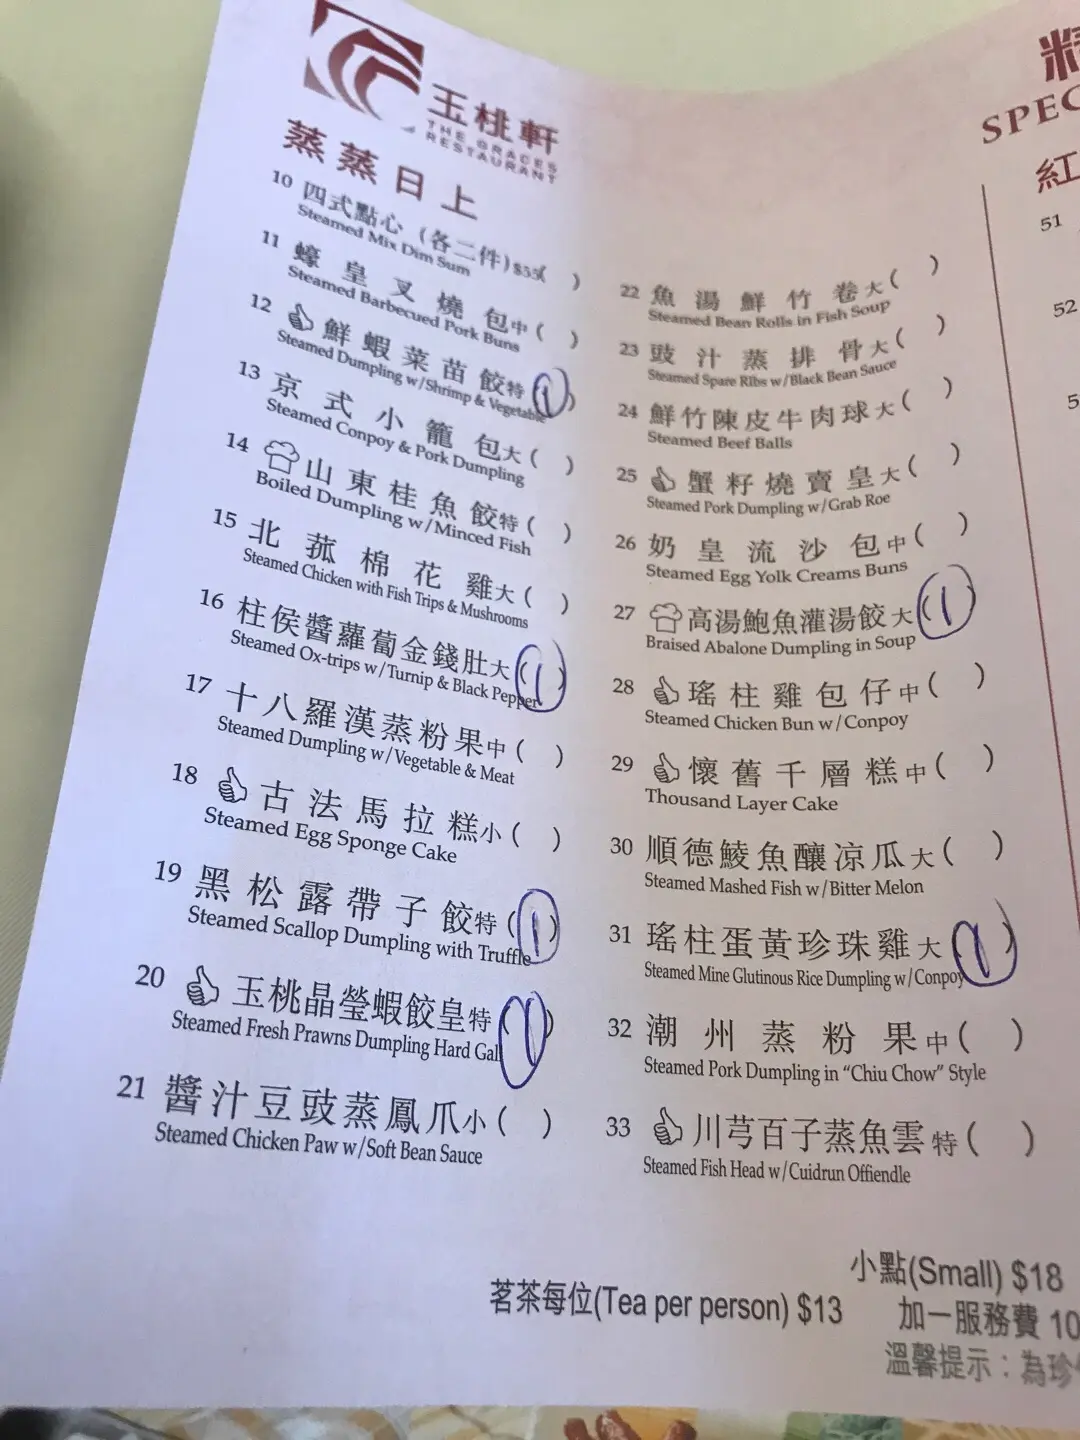 玉桃軒
THE GRACES
RESTAURANT
蒸蒸日上
10 四式點心 (各二件) $55( )
Steamed Mix Dim Sum
11 蠔皇叉燒包中( )
Steamed Barbecued Pork Buns
12 鮮蝦菜苗餃特(1)
Steamed Dumpling w/Shrimp & Vegetable
13 京式小籠包大( )
Steamed Conpoy & Pork Dumpling
14 山東桂魚餃特( )
Boiled Dumpling w/Minced Fish
15 北菰棉花雞大( )
Steamed Chicken with Fish Trips & Mushrooms
16 柱侯醬蘿蔔金錢肚大(1)
Steamed Ox-trips w/Turnip & Black Pepper
17 十八羅漢蒸粉果中( )
Steamed Dumpling w/Vegetable & Meat
18 古法馬拉糕小( )
Steamed Egg Sponge Cake
19 黑松露帶子餃特(1)
Steamed Scallop Dumpling with Truffle
20 玉桃晶瑩蝦餃皇特(1)
Steamed Fresh Prawns Dumpling Hard Gal
21 醬汁豆豉蒸鳳爪小( )
Steamed Chicken Paw w/Soft Bean Sauce
22 魚湯鮮竹卷大( )
Steamed Bean Rolls in Fish Soup
23 豉汁蒸排骨大( )
Steamed Spare Ribs w/Black Bean Sauce
24 鮮竹陳皮牛肉球大( )
Steamed Beef Balls
25 蟹籽燒賣皇大( )
Steamed Pork Dumpling w/Grab Roe
26 奶皇流沙包中( )
Steamed Egg Yolk Creams Buns
27 高湯鮑魚灌湯餃大(1)
Braised Abalone Dumpling in Soup
28 瑤柱雞包仔中( )
Steamed Chicken Bun w/Conpoy
29 懷舊千層糕中( )
Thousand Layer Cake
30 順德鯪魚釀凉瓜大( )
Steamed Mashed Fish w/Bitter Melon
31 瑤柱蛋黃珍珠雞大(1)
Steamed Mine Glutinous Rice Dumpling w/Conpoy
32 潮州蒸粉果中( )
Steamed Pork Dumpling in “Chiu Chow” Style
33 川芎百子蒸魚雲特( )
Steamed Fish Head w/Cuidrun Offiendle
小點(Small) $18
茗茶每位(Tea per person) $13
加一服務費 10
溫馨提示：為珍
SPEC
紅
51
52